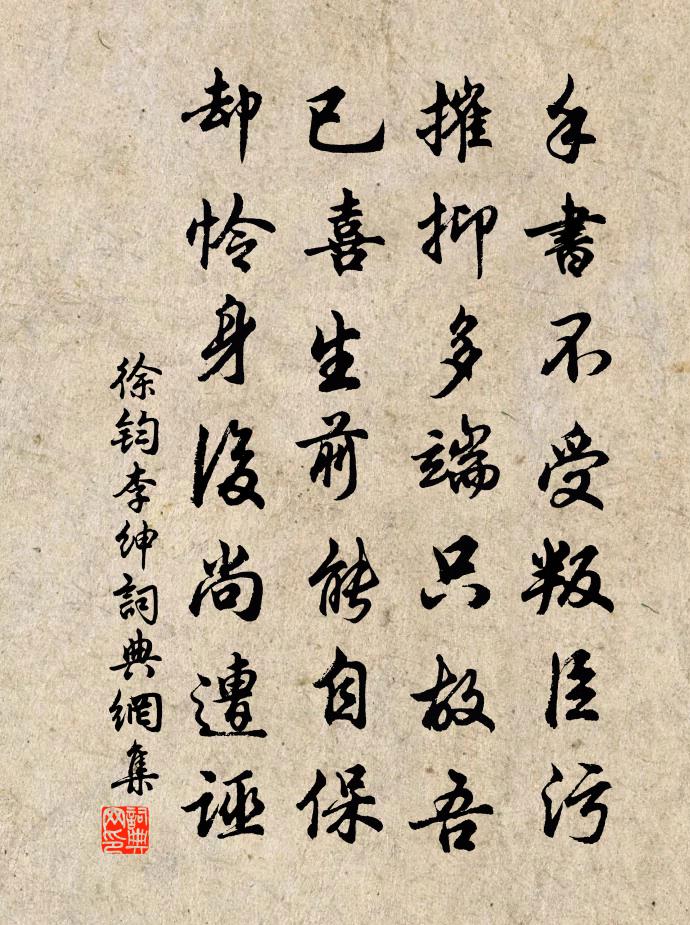 手書不受叛臣污
摧抑多端只故吾
已喜生前能自保
却憐身後尚遭誣
徐鈞李紳詞典網集
詞典网印